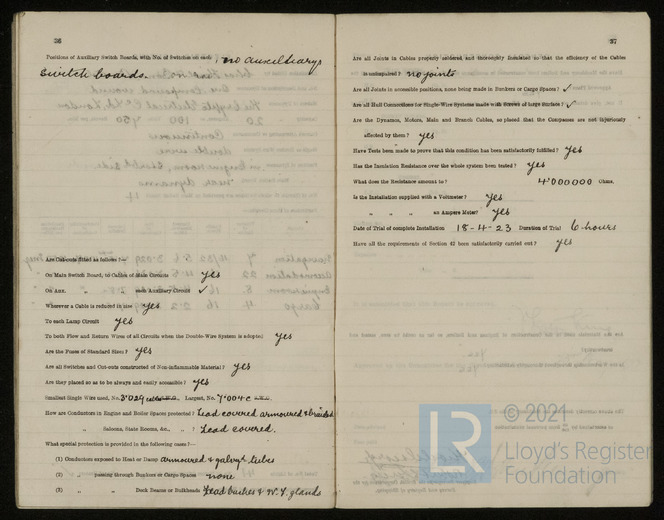 36
Positions of Auxiliary Switch Boards, with No. of Switches on each no auxilliary
Switch boards.
Are Cut-outs fitted as follows?—
On Main Switch Board, to Cables of Main Circuits Yes
On Aux. " " each Auxiliary Circuit ✓
Wherever a Cable is reduced in size Yes
To each Lamp Circuit Yes
To both Flow and Return Wires of all Circuits when the Double-Wire System is adopted Yes
Are the Fuses of Standard Sizes? Yes
Are all Switches and Cut-outs constructed of Non-inflammable Material? Yes
Are they placed so as to be always and easily accessible? Yes
Smallest Single Wire used, No. 3/029 Largest, No. 7/004
How are Conductors in Engine and Boiler Spaces protected? Lead covered armoured & braided
" Saloons, State Rooms, &c., " : Lead covered.
What special protection is provided in the following cases?—
(1) Conductors exposed to Heat or Damp armoured & galvd tubes
(2) " passing through Bunkers or Cargo Spaces none
(3) " " Deck Beams or Bulkheads Lead bushes & W.T. glands
37
Are all Joints in Cables properly soldered and thoroughly insulated so that the efficiency of the Cables
is unimpaired? no joints
Are all Joints in accessible positions, none being made in Bunkers or Cargo Spaces? ✓
Are all Hull Connections for Single-Wire Systems made with Screws of large Surface? ✓
Are the Dynamos, Motors, Main and Branch Cables, so placed that the Compasses are not injuriously
affected by them? Yes
Have Tests been made to prove that this condition has been satisfactorily fulfilled? Yes
Has the Insulation Resistance over the whole system been tested? Yes
What does the Resistance amount to? 4'000000 Ohms.
Is the Installation supplied with a Voltmeter? Yes
" " " an Ampere Meter? Yes
Date of Trial of complete Installation 18-4-23 Duration of Trial 6 hours
Have all the requirements of Section 42 been satisfactorily carried out? Yes
LR
© 2021
Lloyd's Register
Foundation